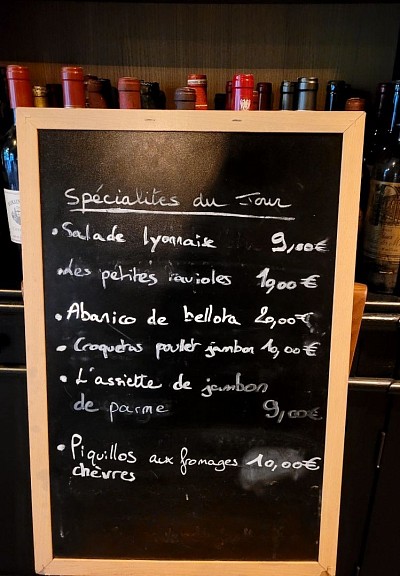 Spécialités du Tour
• Salade lyonnaise 9,00€
• Les petites ravioles 1900€
• Abanico de bellota 20,00€
• Croquetas poulet jambon 10,00€
• L'assiette de jambon
de parme 9,00€
• Piquillos aux fromages 10,00€
chèvres